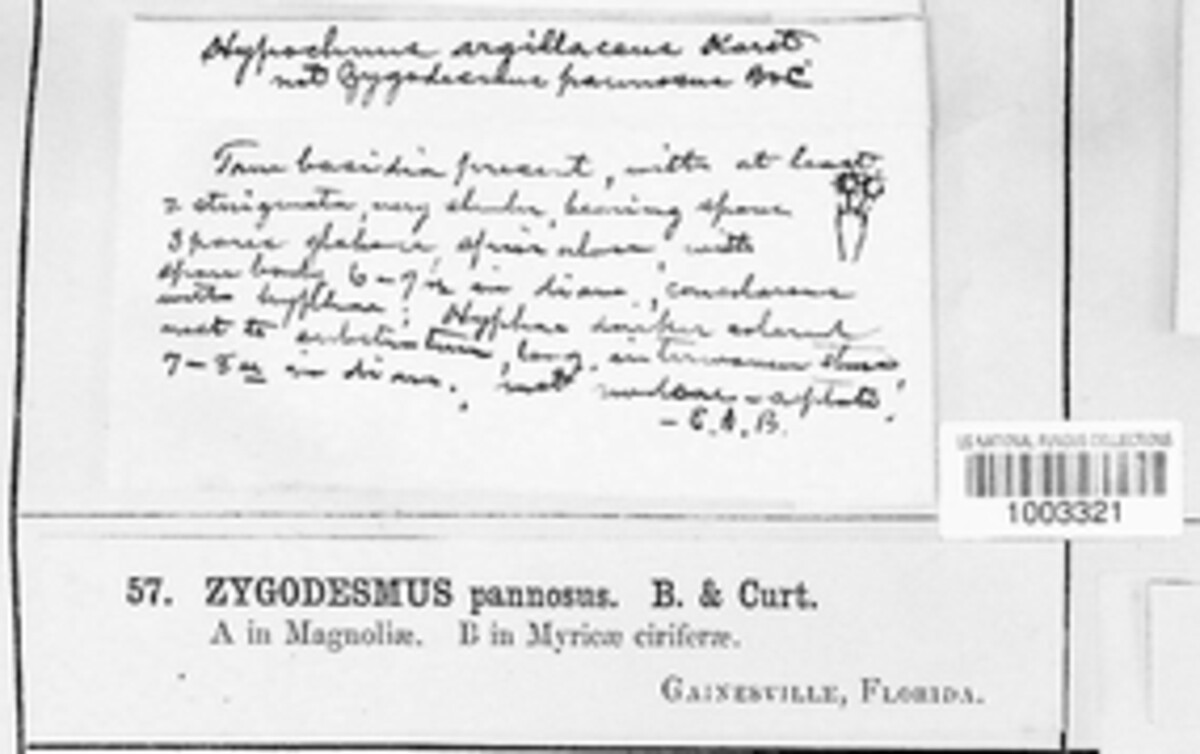 Hypochnus argillaceus Karst
not Zygodesmus pannosus B&C
True basidia present, with at least
2 sterigmata, very slender, bearing spore
Spores globose, spinulose, with
spore body 6–7 µ in diam., concolorous
with hyphae. Hyphae darker colored
next to substratum, long, interwoven
7–8 µ in diam., not nodose-septate.
– E.A.B.
US NATIONAL FUNGUS COLLECTIONS
1003321
57. ZYGODESMUS pannosus. B. & Curt.
A in Magnoliæ. B in Myricæ ciriferæ.
GAINESVILLE, FLORIDA.